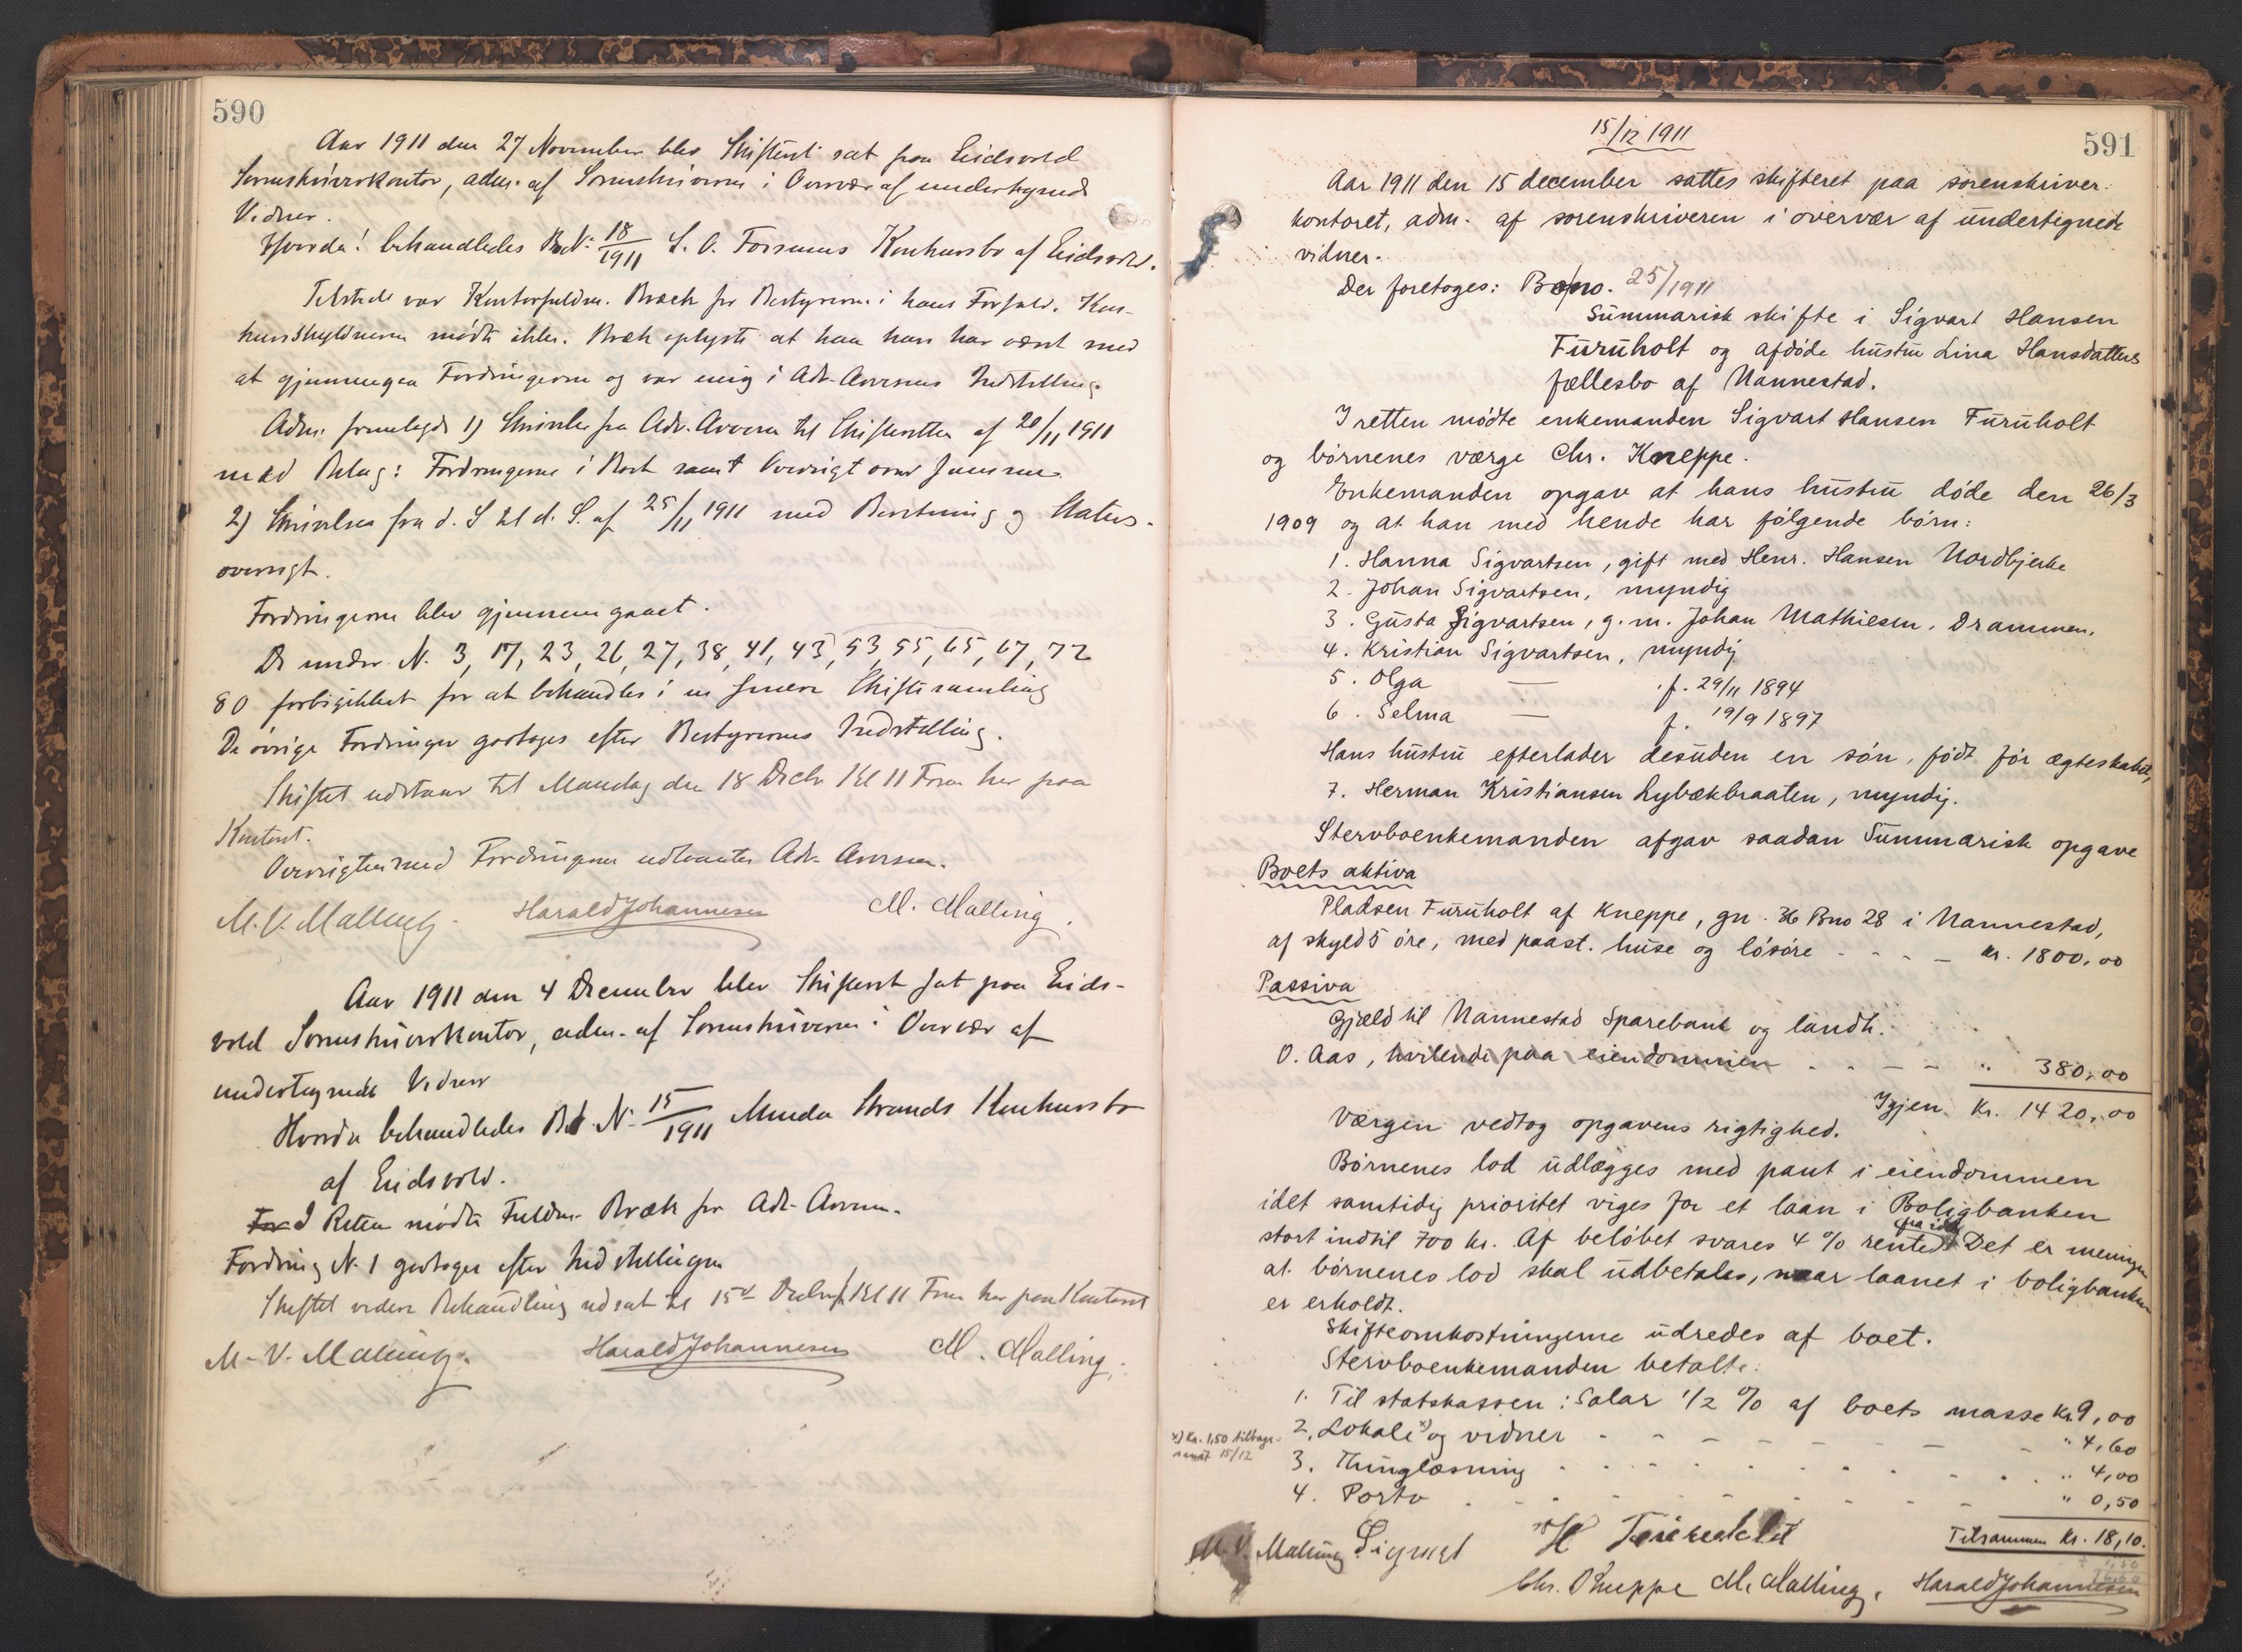 590
Aar 1911 den 27 November blev Skifteret sat paa Eidsvold
Sorenskriverkontor, adm. af Sorenskriveren i Overvær af undertegnede
Vidner.
Hvorda! behandledes Bo N: 18/1911 L. O. Forsmoes Konkursbo af Eidsvold.
Tilstede var Kontorfuldm. Bræck for Bestyreren i hans Forfald. Kon-
kursskyldneren mødte ikke. Bræk oplyste at han har været med
at gjennemgaa Fordringerne og var enig i Adv. Aversens Indstilling.
Adm. fremlagde 1) Skrivelse fra Adv. Aversen til Skifteretten af 20/11 1911
med Bilag: Fordringerne i Boet samt Oversigt over samme.
2) Skrivelse fra d. S. til d. S. af 25/11 1911 med Beretning og Status-
oversigt.
Fordringerne blev gjennemgaaet.
De under N. 3, 17, 23, 26, 27, 38, 41, 43, 53, 55, 65, 67, 72
80 forbigikkes for at behandles i en senere Skiftesamling
De øvrige Fordringer godtages efter Bestyrerens Indstilling.
Skiftet udstaar til Mandag den 18 Decbr Kl 11 Form her paa
Kontoret.
Oversigten med Fordringerne udlaantes Adv. Aversen.
M. V. Malling. Harald Johannesen M. Malling.
Aar 1911 den 4 December blev Skifteret sat paa Eids-
vold Sorenskriverkontor, adm. af Sorenskriveren i Overvær af
undertegnede Vidner
Hvorda behandledes Bo N. 15/1911 Minda Strands Konkursbo
af Eidsvold.
For I Retten mødte Fuldm. Bræk for Adv. Aversen.
Fordring N. 1 godtages efter Indstillingen
Skiftet videre Behandling udsat til 15de Decbr Kl 11 Form her paa Kontoret
M. V. Malling. Harald Johannesen M. Malling.
15/12 1911
591
Aar 1911 den 15 december sattes skifteret paa sorenskriver-
kontoret, adm. af sorenskriveren i overvær af undertegnede
vidner.
Der foretoges: Bo no. 25/1911
Summarisk skifte i Sigvart Hansen
Furuholt og afdøde hustru Lina Hansdatters
fællesbo af Nannestad.
I retten mødte enkemanden Sigvart Hansen Furuholt
og børnenes værge Chr. Kneppe.
Enkemanden opgav at hans hustru døde den 26/3
1909 og at han med hende har følgende børn:
1. Hanna Sigvartsen, gift med Henr. Hansen Nordbjerke
2. Johan Sigvartsen, myndig
3. Gusta Sigvartsen, g. m. Johan Mathiesen, Drammen.
4. Kristian Sigvartsen, myndig
5. Olga — f. 29/11 1894
6. Selma — f. 19/9 1897
Hans hustru efterlader desuden en søn, født før ægteskabet,
7. Herman Kristiansen Lybækbraaten, myndig.
Stervboenkemanden afgav saadan Summarisk opgave
Boets aktiva
Pladsen Furuholt af Kneppe, gn. 36 Bno 28 i Nannestad,
af skyld 5 øre, med paast. huse og løsøre - - - - kr. 1800,00
Passiva
Gjæld til Nannestad Sparebank og landh.
O. Aas, hvilende paa eiendommen - - - - " 380,00
Igjen Kr. 1420,00
Værgen vedtog opgavens rigtighed.
Børnenes lod udlægges med pant i eiendommen
idet samtidig prioritet viges for et laan i Boligbanken
stort indtil 700 kr. Af beløbet svares 4 % rente fra idag Det er meningen
at børnenes lod skal udbetales, naar laanet i boligbanken
er erholdt.
Skifteomkostningerne udredes af boet.
Stervboenkemanden betalte:
1. Til statskassen: Salar 1/2 % af boets masse Kr. 9,00
2. Lokale x) og vidner - - - - " 4,60
x) Kr. 1,50 tilbage-
sendt 15/12
3. Thinglæsning - - - - " 4,00
4. Porto - - - - " 0,50
Tilsammen Kr. 18,10.
÷ 1,50
16,60
M. V. Malling Sigvart H Furuholt
Chr. Kneppe M. Malling. Harald Johannesen